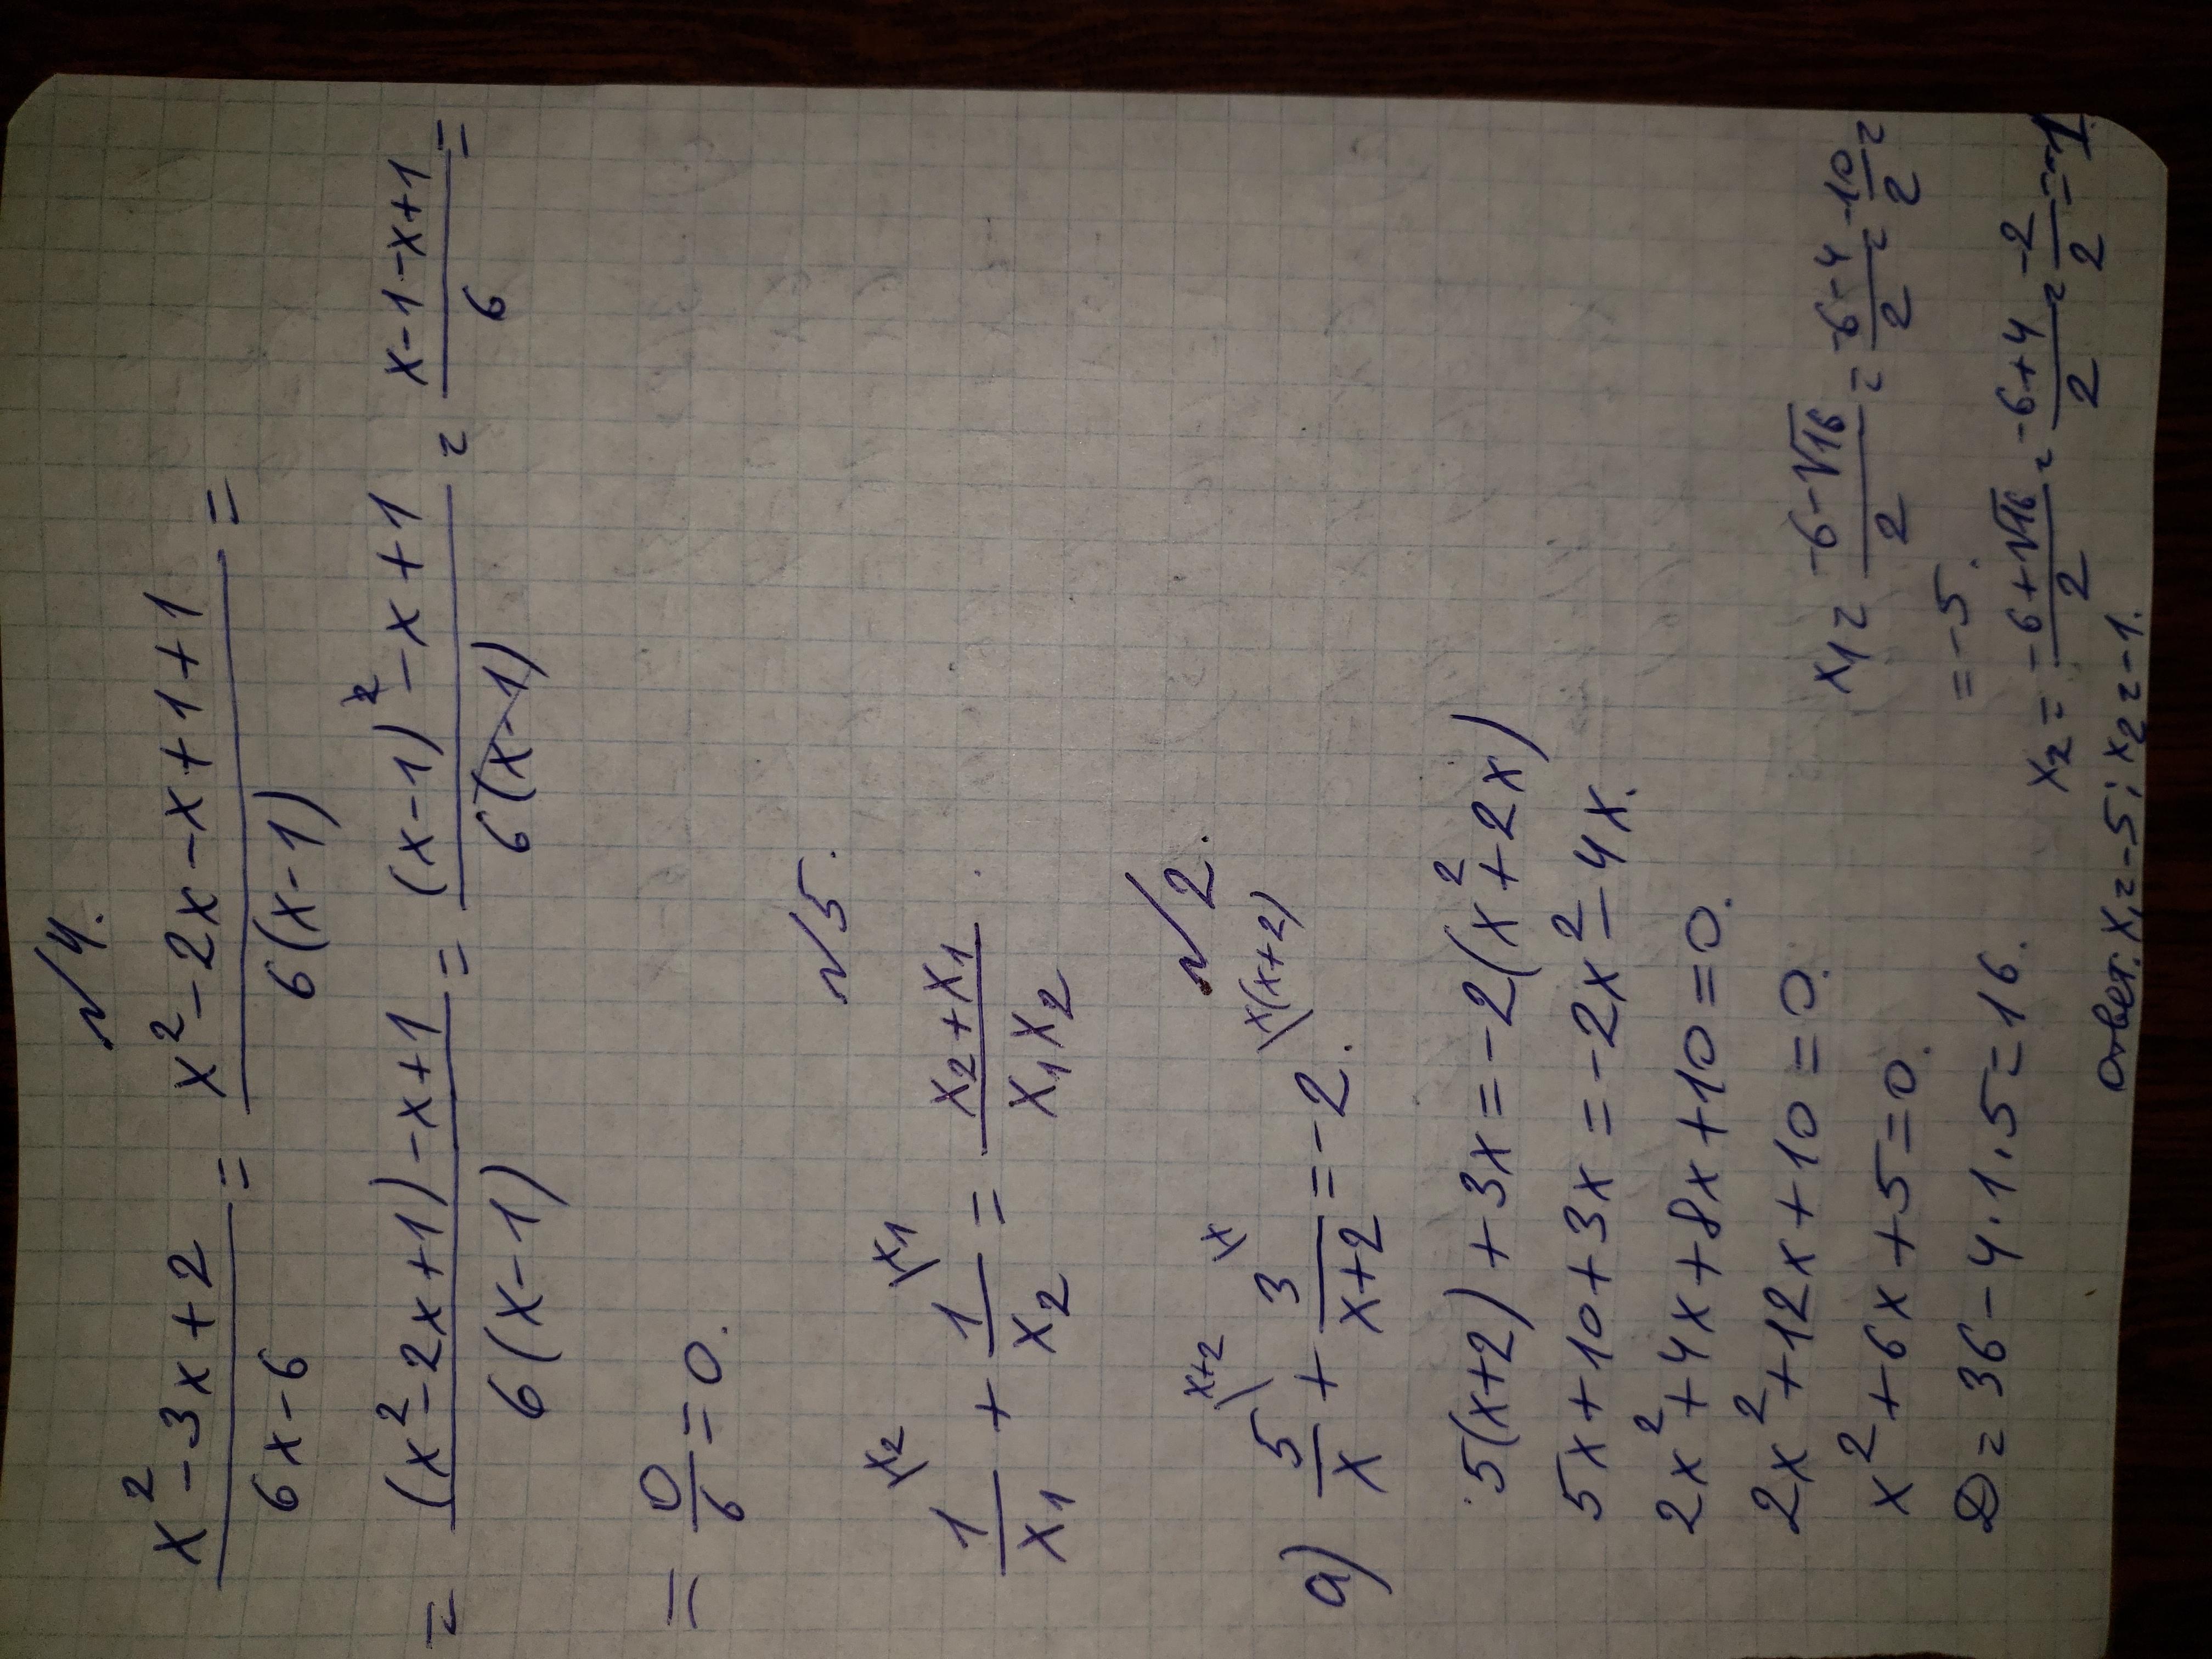 №4.
x²-3x+2/6x-6 = x²-2x-x+1+1/6(x-1) =
= (x²-2x+1)-x+1/6(x-1) = (x-1)²-x+1/6(x-1) = x-1-x+1/6 =
= 0/6 = 0.
№5.
1/x₁ \x₂ + 1/x₂ \x₁ = x₂+x₁/x₁x₂ .
№2.
а) 5/x \x+2 + 3/x+2 \x = -2. \x(x+2)
5(x+2)+3x=-2(x²+2x)
5x+10+3x=-2x²-4x.
2x²+4x+8x+10=0.
2x²+12x+10=0.
x²+6x+5=0.
D=36-4·1·5=16.
x₁= -6-√16/2 = -6-4/2 = -10/2 =
=-5.
x₂= -6+√16/2 = -6+4/2 = -2/2 = -1.
Ответ: x₁=-5; x₂=-1.